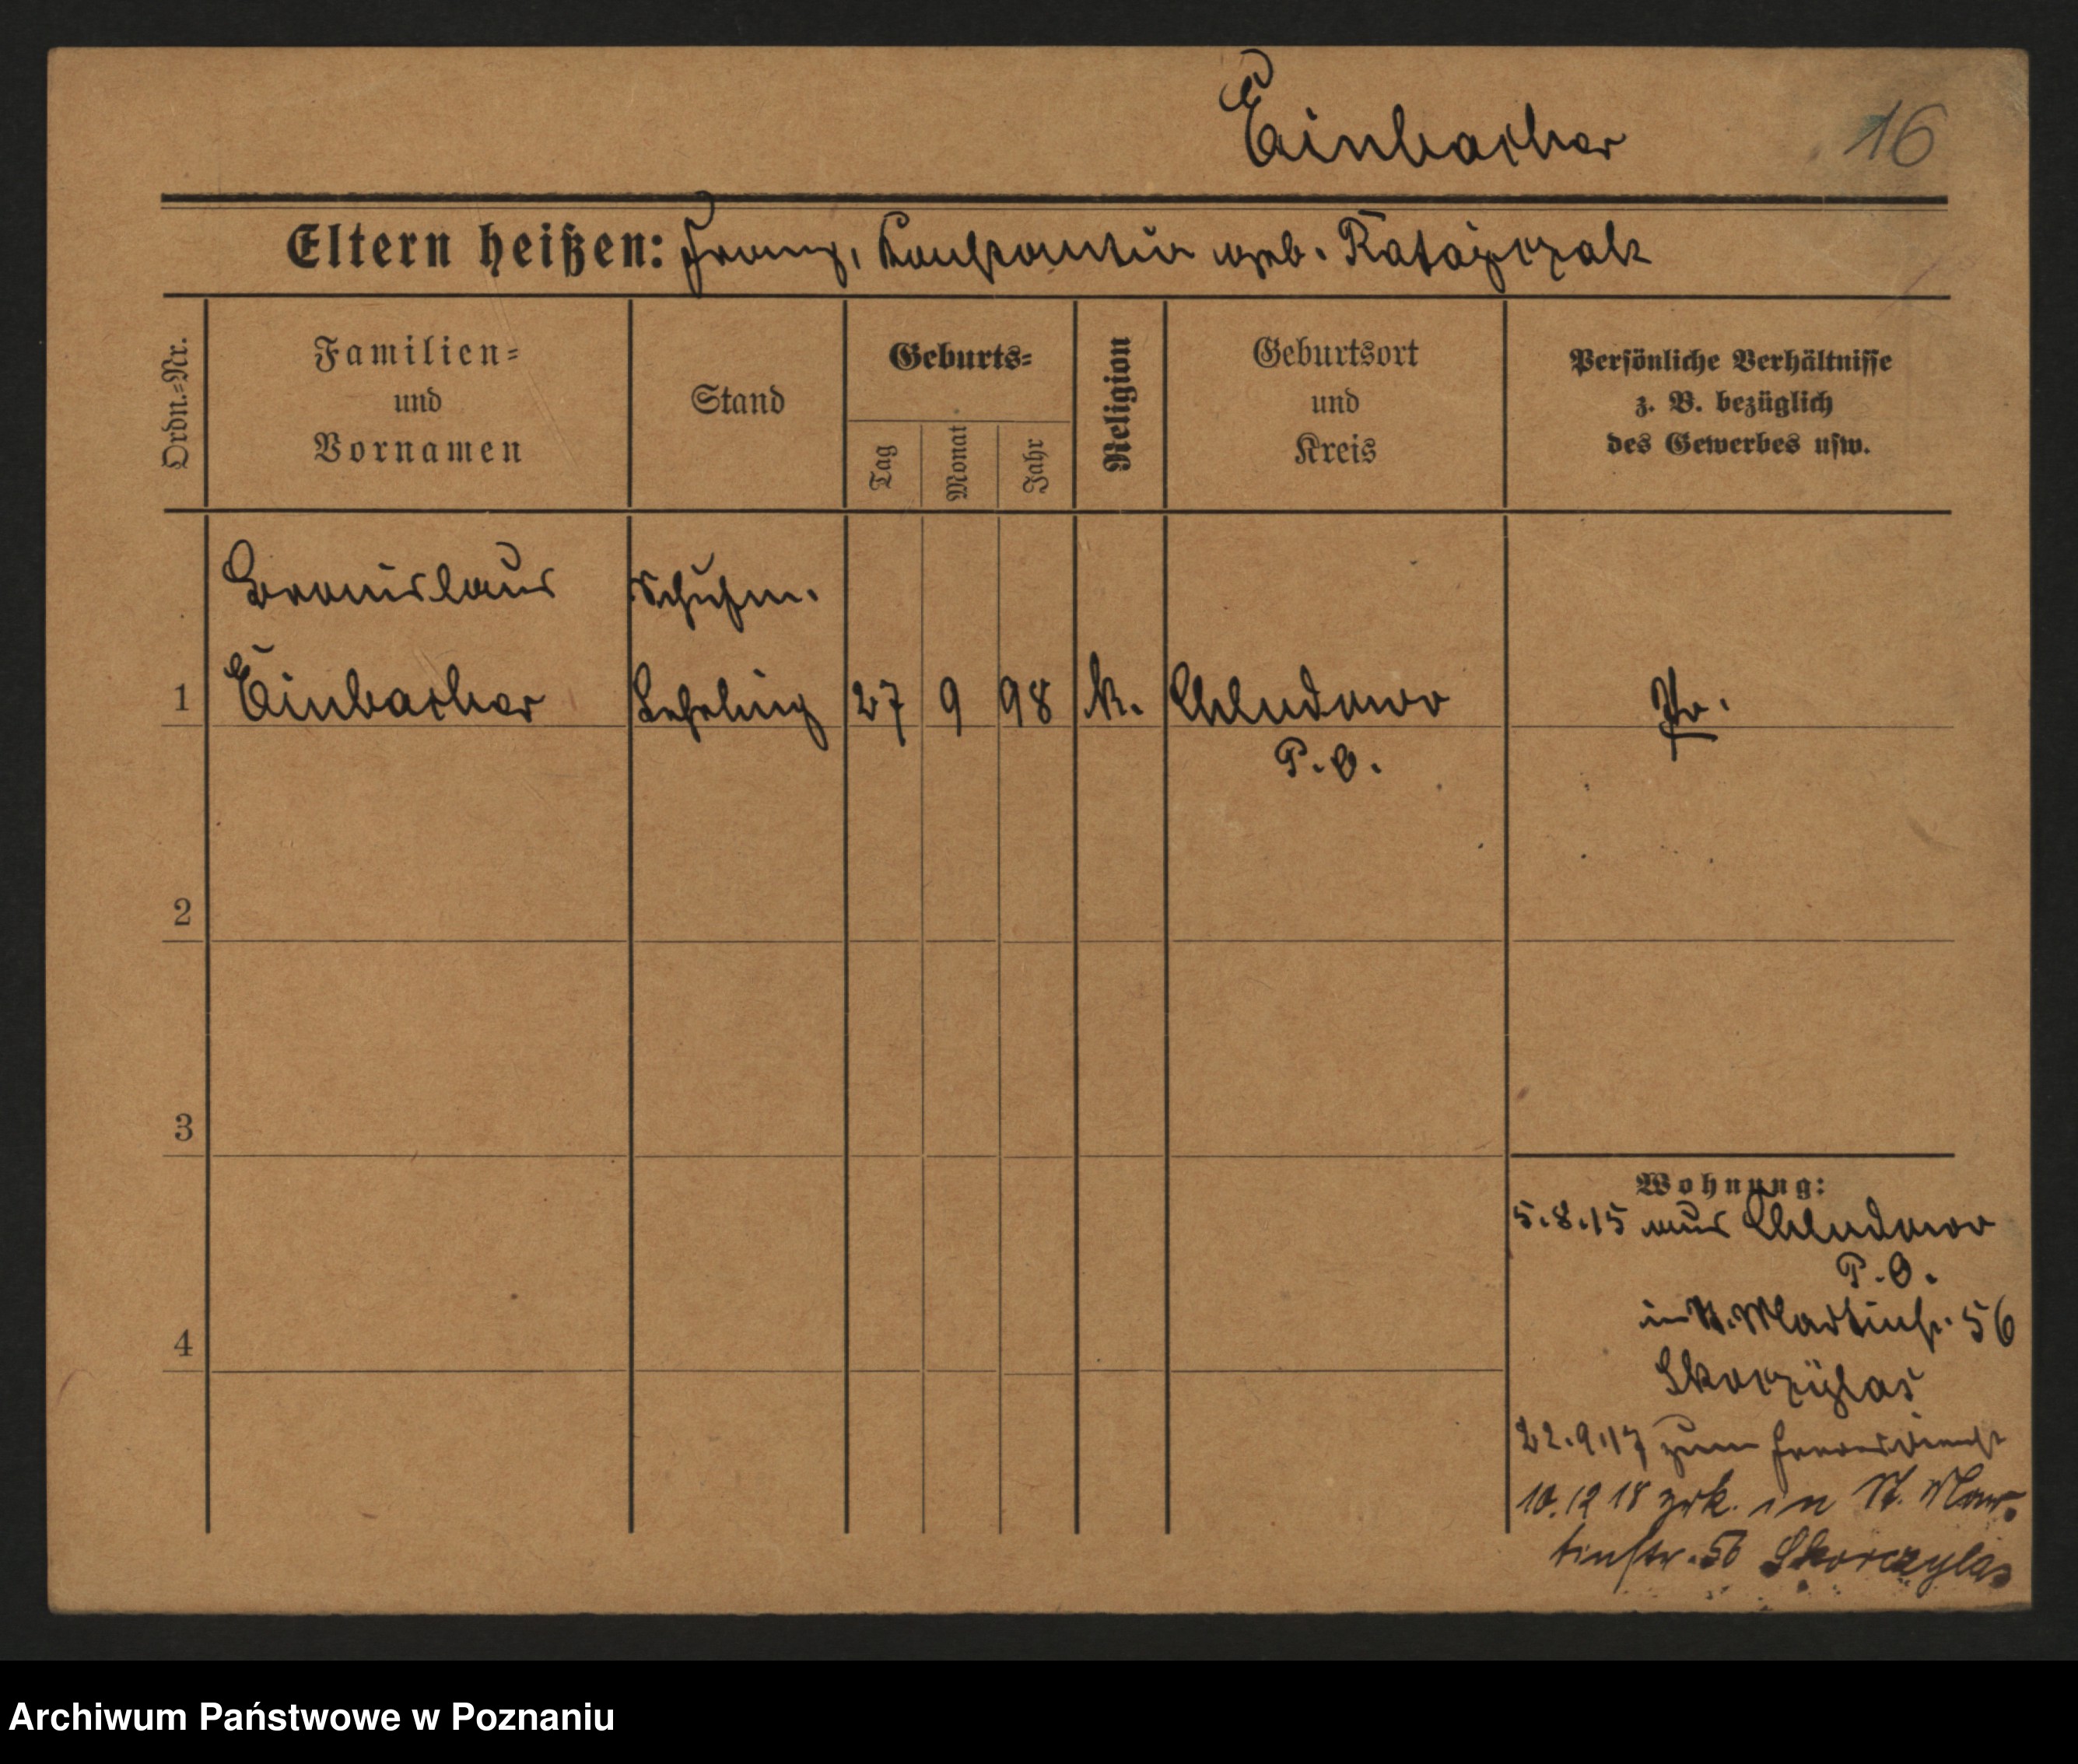 Einbacher 16
Eltern heißen: Franz, Konstantia geb. Ratajczak
Ordn.-Nr.
Familien-
und
Vornamen
Stand
Geburts-
Tag
Monat
Jahr
Religion
Geburtsort
und
Kreis
Persönliche Verhältnisse
z. B. bezüglich
des Gewerbes usw.
Bronislaus Schuhm.
1 Einbacher Lehrling 27 9 98 k. Chludowo Pr.
P.O.
2
3
4
Wohnung:
5.8.15 aus Chludowo
P.O.
in St. Martinstr. 56
Skorzylas
22.9.17 zum Heeresdienst
10.12 18 zrk. in St. Mar-
tinstr. 56 Skorczylas
Archiwum Państwowe w Poznaniu